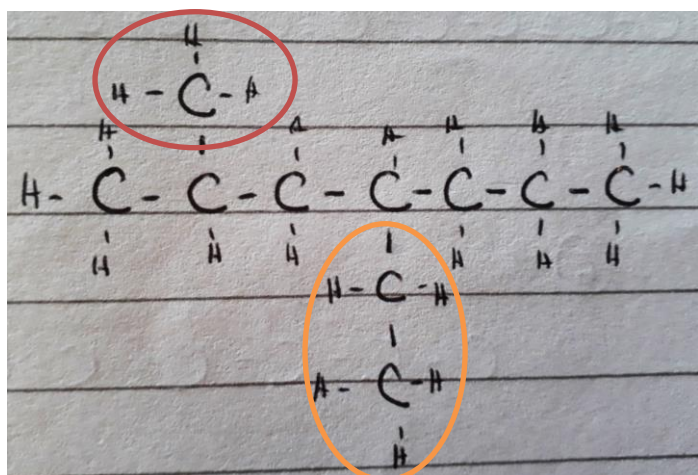 H
H - C - H
H H H H H H
H - C - C - C - C - C - C - C - H
H H H H H H
H - C - H
H - C - H
H